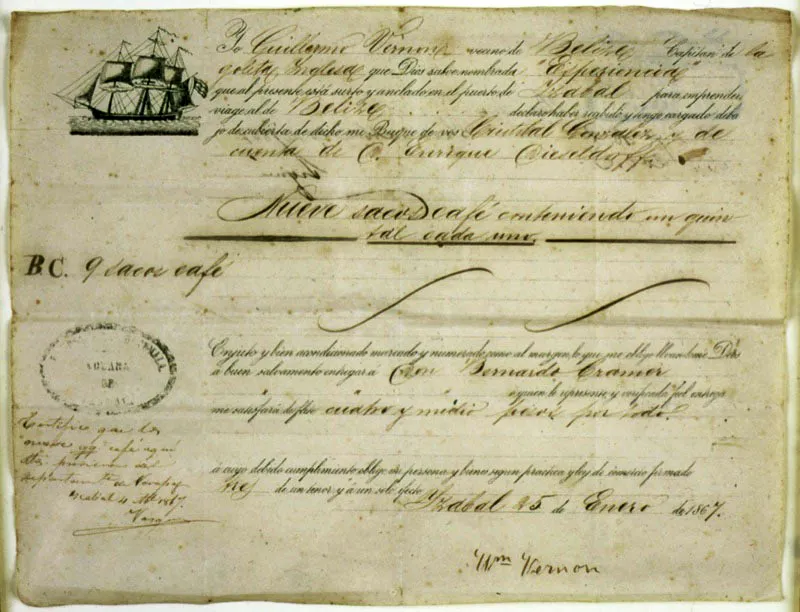 Yo Guillermo Vernon vecino de Belize Capitan de la
goleta Inglesa que Dios salve nombrada "Esperiencia"
que al presente está surto y anclado en el puerto de Yzabal para emprender
viage al de Belize declaro haber recibido y tengo cargado deba
jo de cubierta de dicho mi Buque de vos Cristobal Gonzalez y de
cuenta de D. Enrique
Nueve sacos café conteniendo un quin
tal cada uno.
B.C. 9 sacos café
Enjuto y bien acondicionado marcado y numerado como al margen, lo que me obligo llevandome Dios
á buen salvamento entregar á Don Bernardo Cramer
ó quien le represente, y verificada fiel entrega
me satisfará de flete cuatro y medio pesos por todo.
á cuyo debido cumplimiento obligo mi persona y bienes segun practica y ley de comercio firmado
tres de un tenor y á un solo efecto Yzabal 25 de Enero de 1867.
Wm Vernon
ADUANA
DE
Certifico que los
nueve qq café aqui
Yzabal 1867.